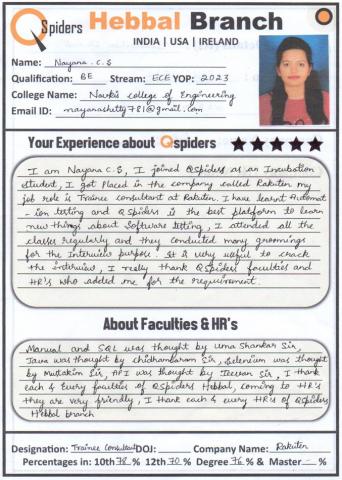 QSpiders Hebbal Branch
INDIA | USA | IRELAND
Name: Nayana. C. S
Qualification: BE Stream: ECE YOP: 2023
College Name: Navkis college of Engineering
Email ID: nayanashetty781@gmail.com
Your Experience about Qspiders
I am Nayana C.S, I joined QSpiders as an Incubation
student, I got placed in the company called Rakuten my
job role is Trainee consultant at Rakuten. I have learnt Automat
-ion testing and QSpiders is the best platform to learn
new things about Software testing, I attended all the
classes regularly and they conducted many groomings
for the Interview purpose. It is very useful to crack
the interview, I really thank QSpiders faculties and
HR's who added me for the requirement.
About Faculties & HR's
Manual and SQL was thought by Uma Shankar Sir,
Java was thought by chidhambaram Sir, Selenium was thought
by Muttakim Sir, API was thought by Sir, I thank
each & Every faculties of QSpiders Hebbal, coming to HR's
they are very friendly, I thank each & every HR's of QSpiders
Hebbal branch
Designation: Trainee Consultant DOJ: Company Name: Rakuten
Percentages in: 10th 78 % 12th 70 % Degree 76 % & Master - %